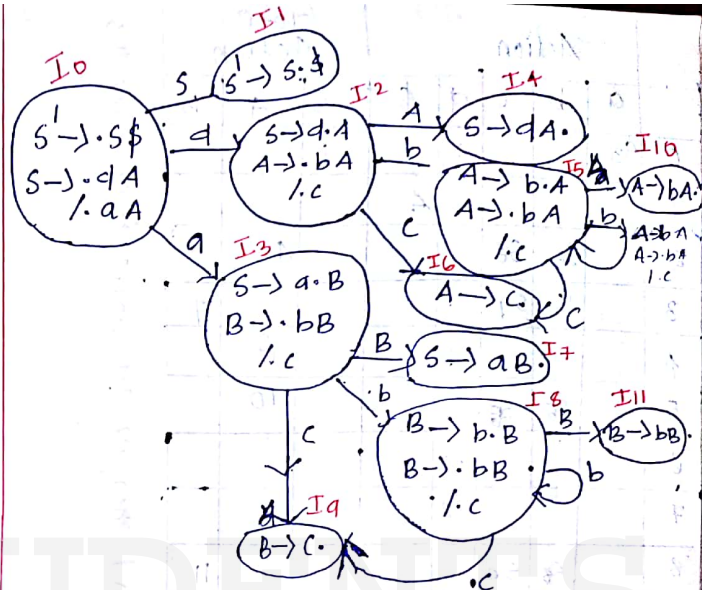 I0
S' → .S$
S → .dA
/.aA
S
I1
S' → S.$
d
I2
S → d.A
A → .bA
/.c
A
I4
S → dA.
b
I5
A → b.A
A → .bA
/.c
I10
A → bA.
b
A → bA
A → .bA
/.c
c
I6
A → c.
c
a
I3
S → a.B
B → .bB
/.c
B
I7
S → aB.
b
I8
B → b.B
B → .bB
/.c
B
I11
B → bB.
b
c
I9
B → c.
.c